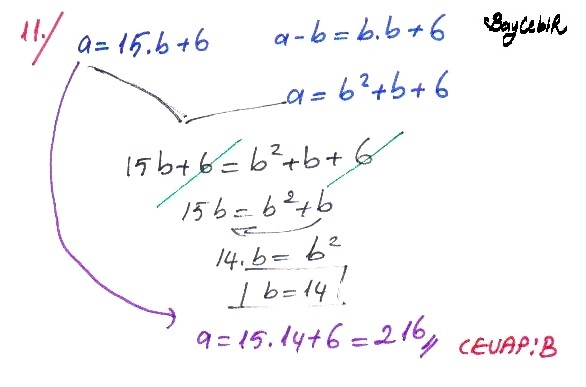 11./ a=15.b+6 a-b=b.b+6 BayCebiR
a=b²+b+6
15b+6=b²+b+6
15b=b²+b
14.b=b²
b=14
a=15.14+6=216,, CEVAP:B